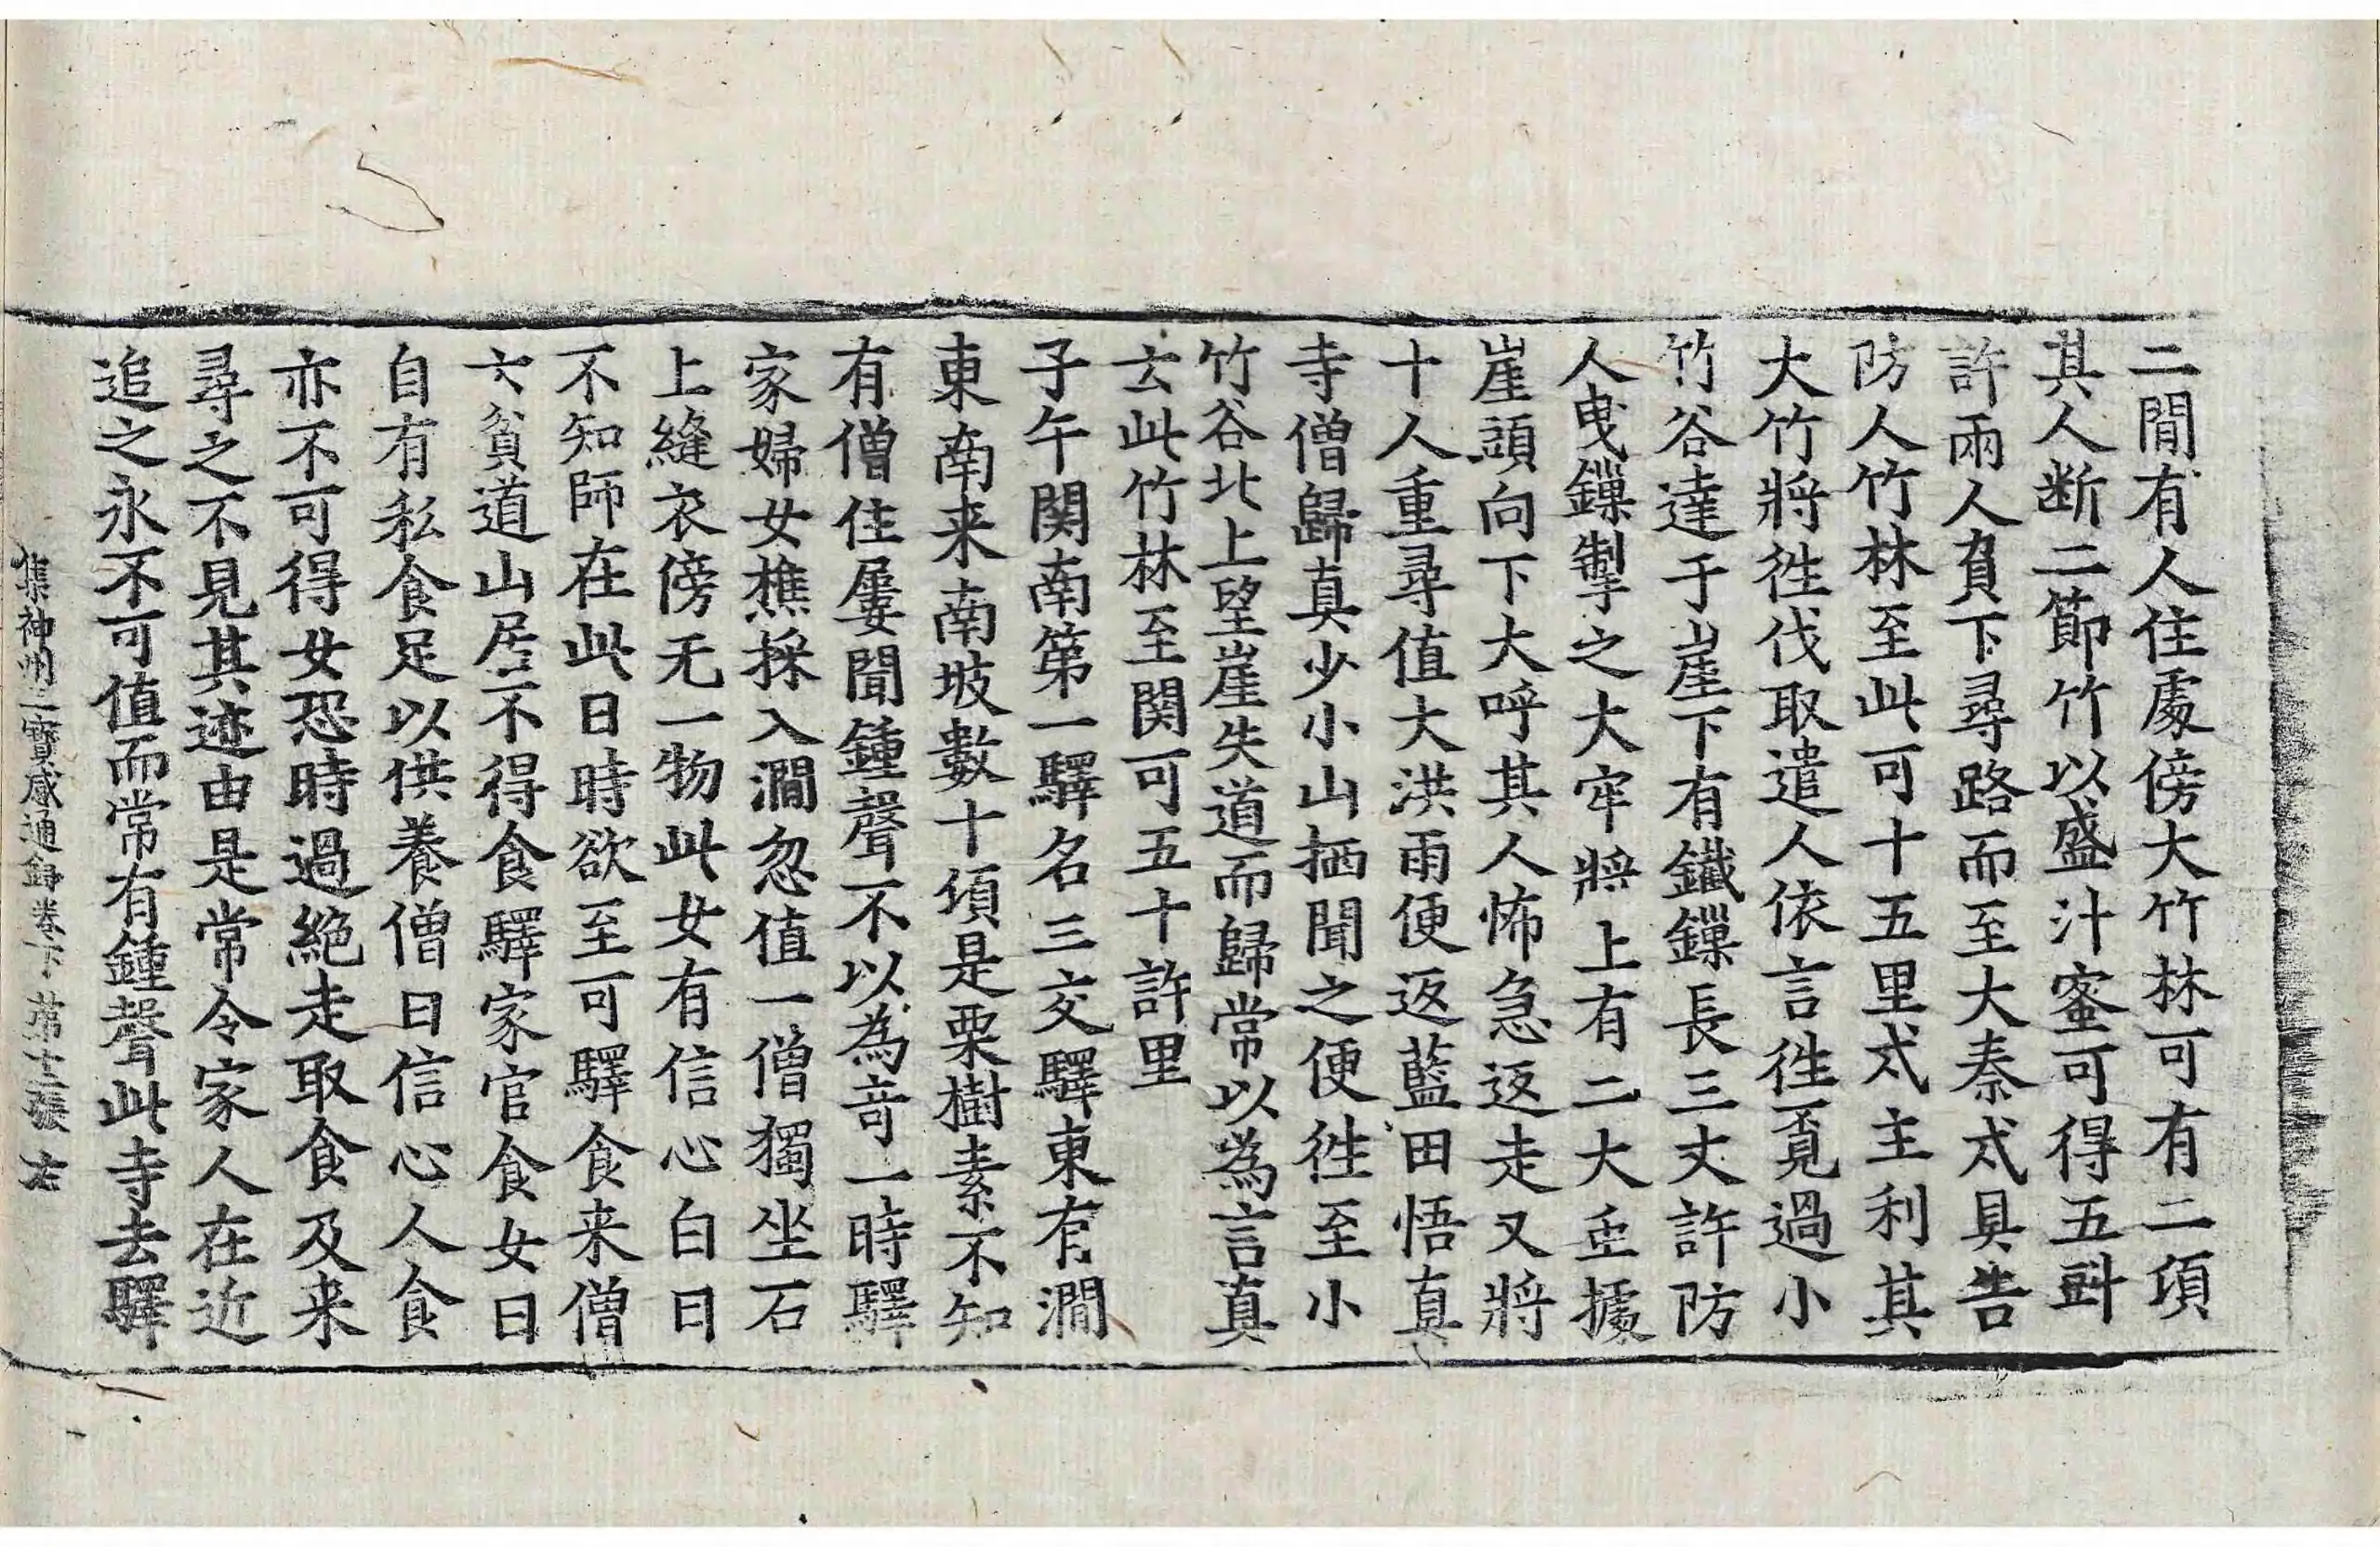 二間有人住處傍大竹林可有二頃
其人断二節竹以盛汁蜜可得五㪷
許兩人負下尋路而至大秦戍具告
防人竹林至此可十五里戍主利其
大竹將徃伐取遣人依言徃覓過小
竹谷達于崖下有鐵鏁長三丈許防
人曳鏁掣之大牢將上有二大𧈅據
崖頭向下大呼其人怖急返走又將
十人重尋值大洪雨便返藍田悟真
寺僧歸真少小山栖聞之便徃至小
竹谷北上望崖失道而歸常以為言真
云此竹林至関可五十許里
子午関南第一驛名三交驛東有澗
東南来南坡數十頃是栗樹素不知
有僧住屢聞鍾聲不以為竒一時驛
家婦女樵採入澗忽值一僧獨坐石
上縫衣傍无一物此女有信心白曰
不知師在此日時欲至可驛食来僧
云貧道山居不得食驛家官食女曰
自有私食足以供養僧曰信心人食
亦不可得女恐時過絶走取食及来
尋之不見其迹由是常令家人在近
追之永不可值而常有鍾聲此寺去驛
集神州三寶感通録卷下 苐十二張 右